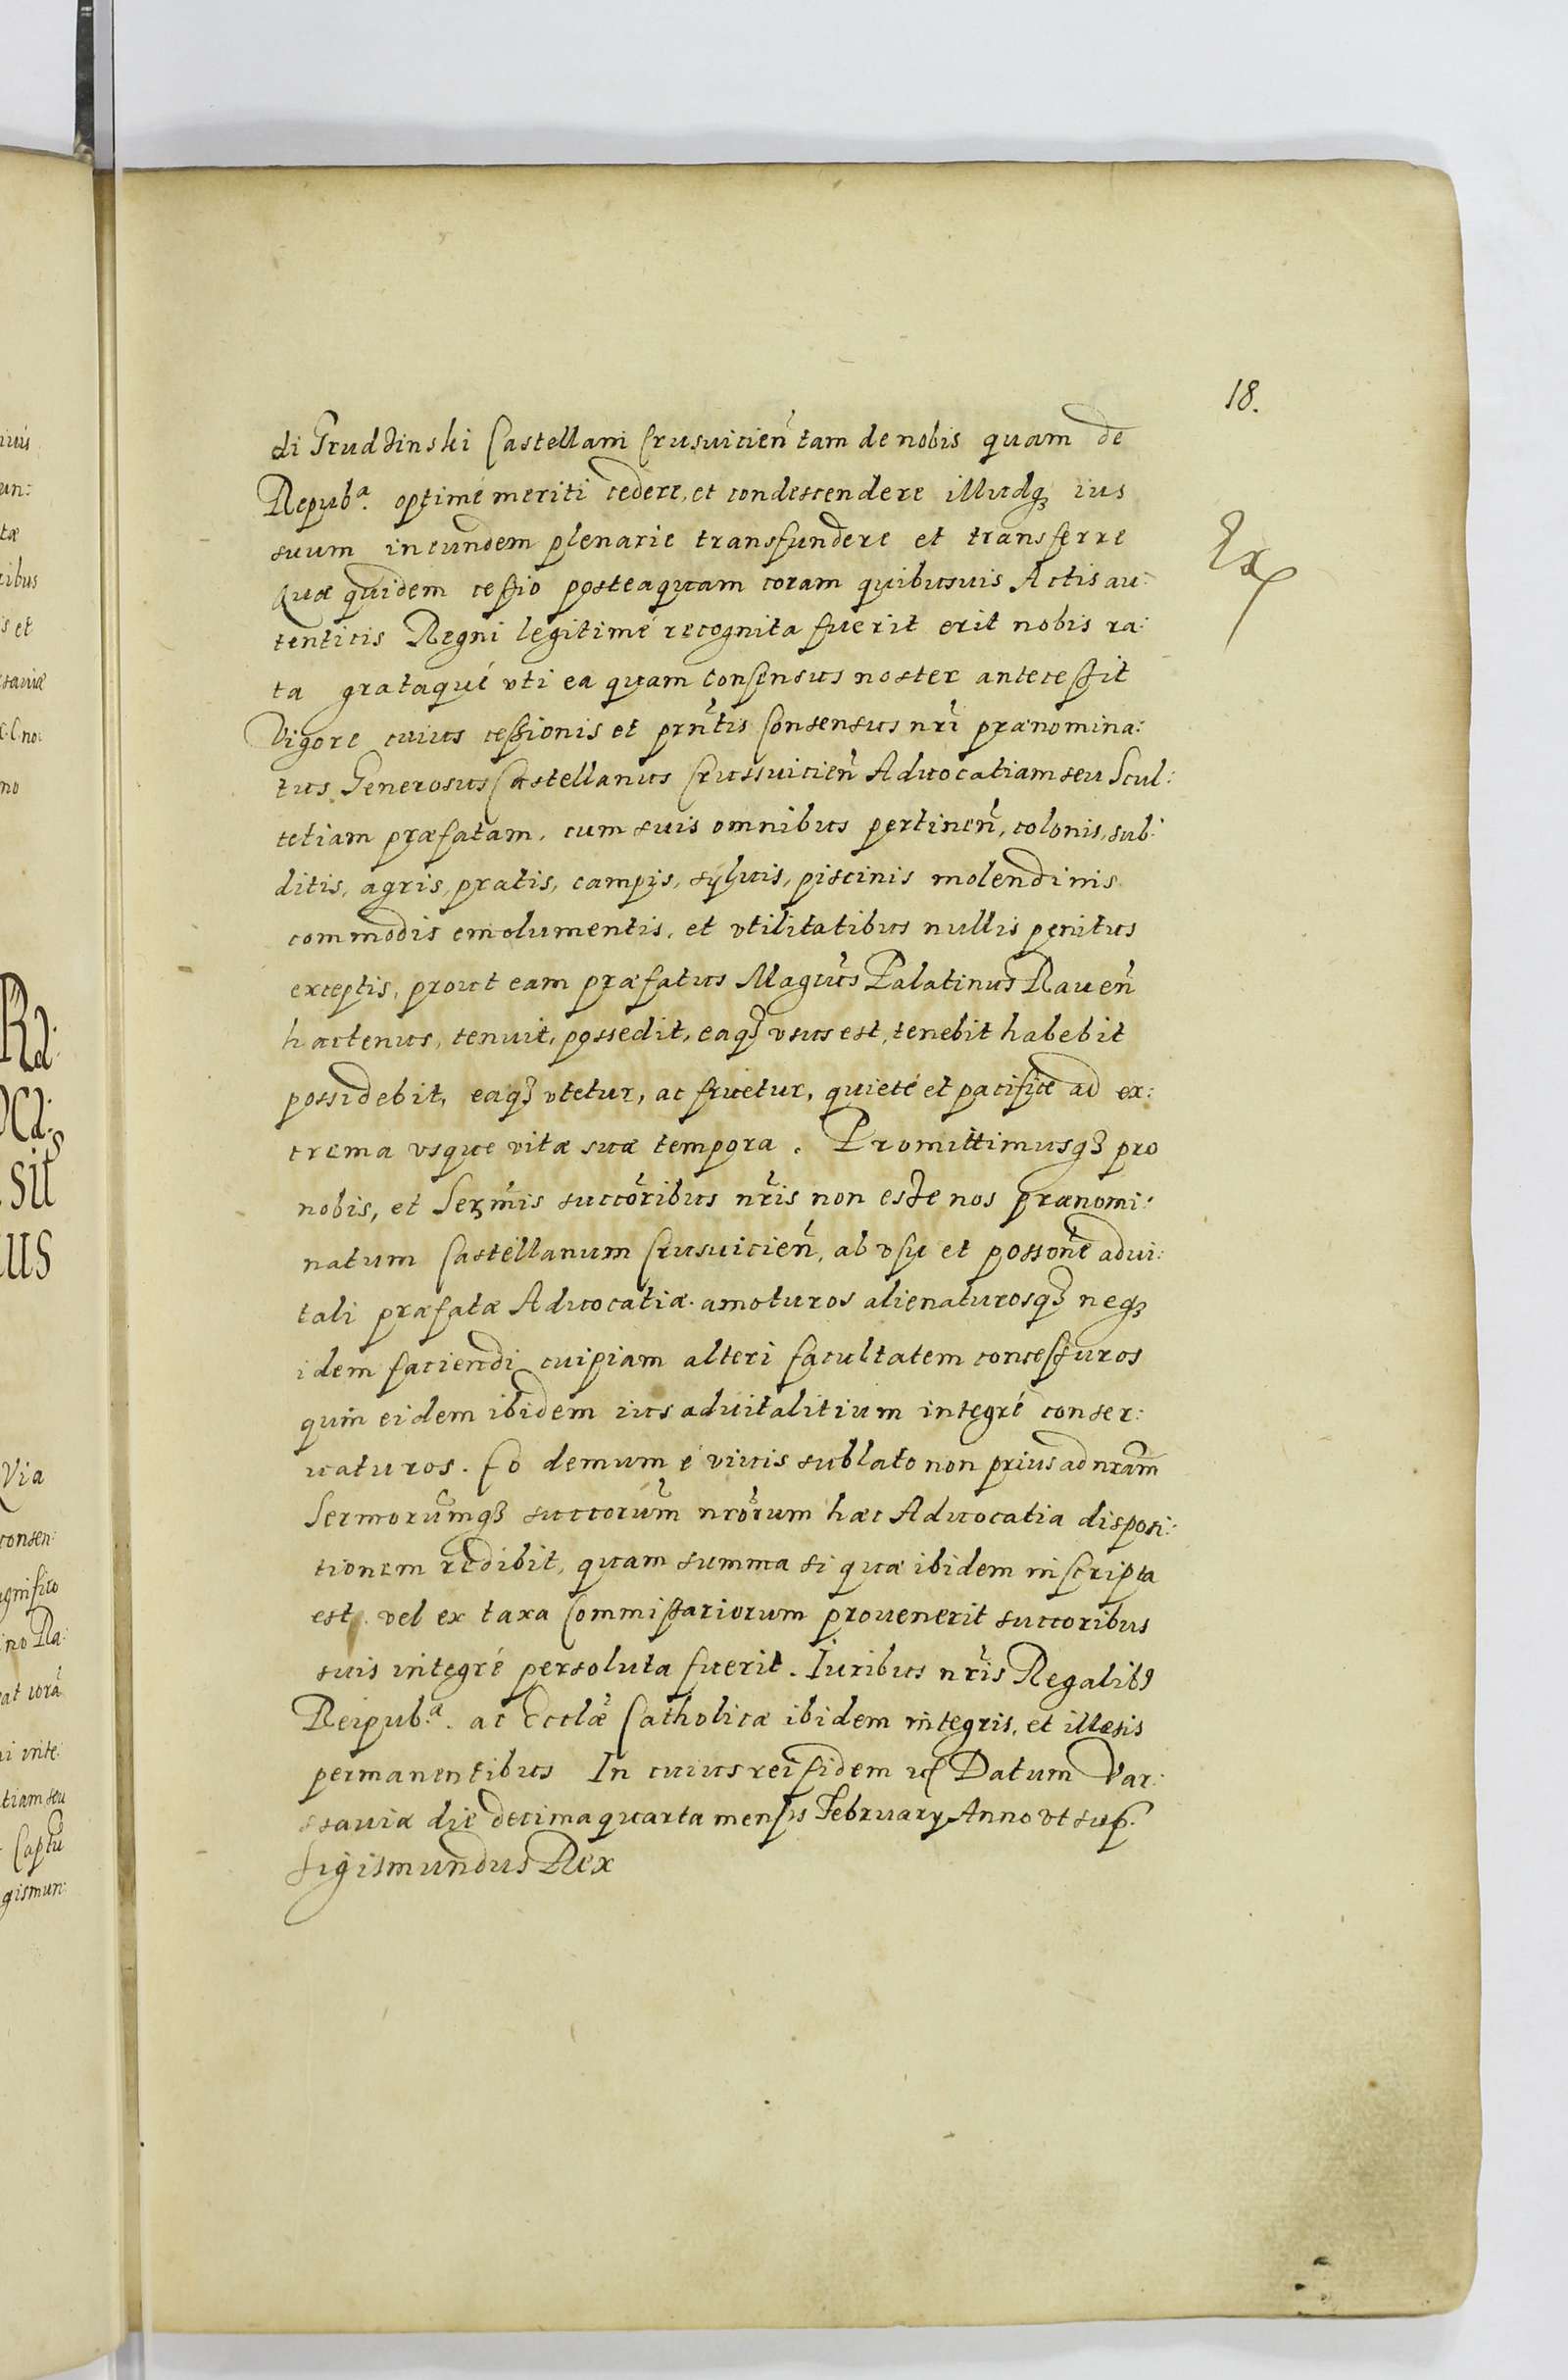 18.
di Grudzinski Castellani Crusuicien̄ tam de nobis quam de
Repub.ᵃ optimé meriti cedere, et condescendere illudqꝫ ius
suum in eundem plenarie transfundere et transferre
Quæ quidem cessio posteaquam coram quibusuis Actis au:
tenticis Regni legitimé recognita fuerit erit nobis ra:
ta grataqué vti ea quam consensus noster antecessit
Vigore cuius cessionis et prn̄tis Consensus nr̄i prænomina:
tus Generosus Castellanus Crussuicien̄ Aduocatiam seu Scul:
tetiam præfatam, cum suis omnibus pertinen̄, colonis, sub:
ditis, agris, pratis, campis, sÿluis, piscinis molendinis
commodis emolumentis, et vtilitatibus nullis penitus
exceptis, prout eam præfatus Magcūs Palatinus Rauen̄
hactenus, tenuit, possedit, eaqꝫ vsus est, tenebit habebit
possidebit, eaqꝫ vtetur, ac fruetur, quieté et pacificé ad ex:
trema vsque vitæ suæ tempora. Promittimusqꝫ pro
nobis, et Serm̄is succōribus nr̄is non esse nos prænomi:
natum Castellanum Crusuicien̄, ab vsu et possōne adui:
tali præfatæ Aduocatiæ amoturos alienaturosqꝫ neqꝫ
idem faciendi cuipiam alteri facultatem concessuros
quin eidem ibidem ius aduitalitium integré conser:
uaturos. Eo demum é viuis sublato non prius ad nrām
Sermorūmqꝫ succorūm nrōrum hæc Aduocatia disposi:
tionem redibit, quam summa si quæ ibidem inscripta
est vel ex taxa Commissariorum prouenerit succoribus
suis integré persoluta fuerit. Iuribus nr̄is Regalibꝰ
Reipub.ᵃ ac Ecclǣ Catholicæ ibidem integris, et illæsis
permanentibus In cuius rei fidem Datum Var:
ssauiæ die decima quarta mensis February Anno vt sup.
Sigismundus Rex